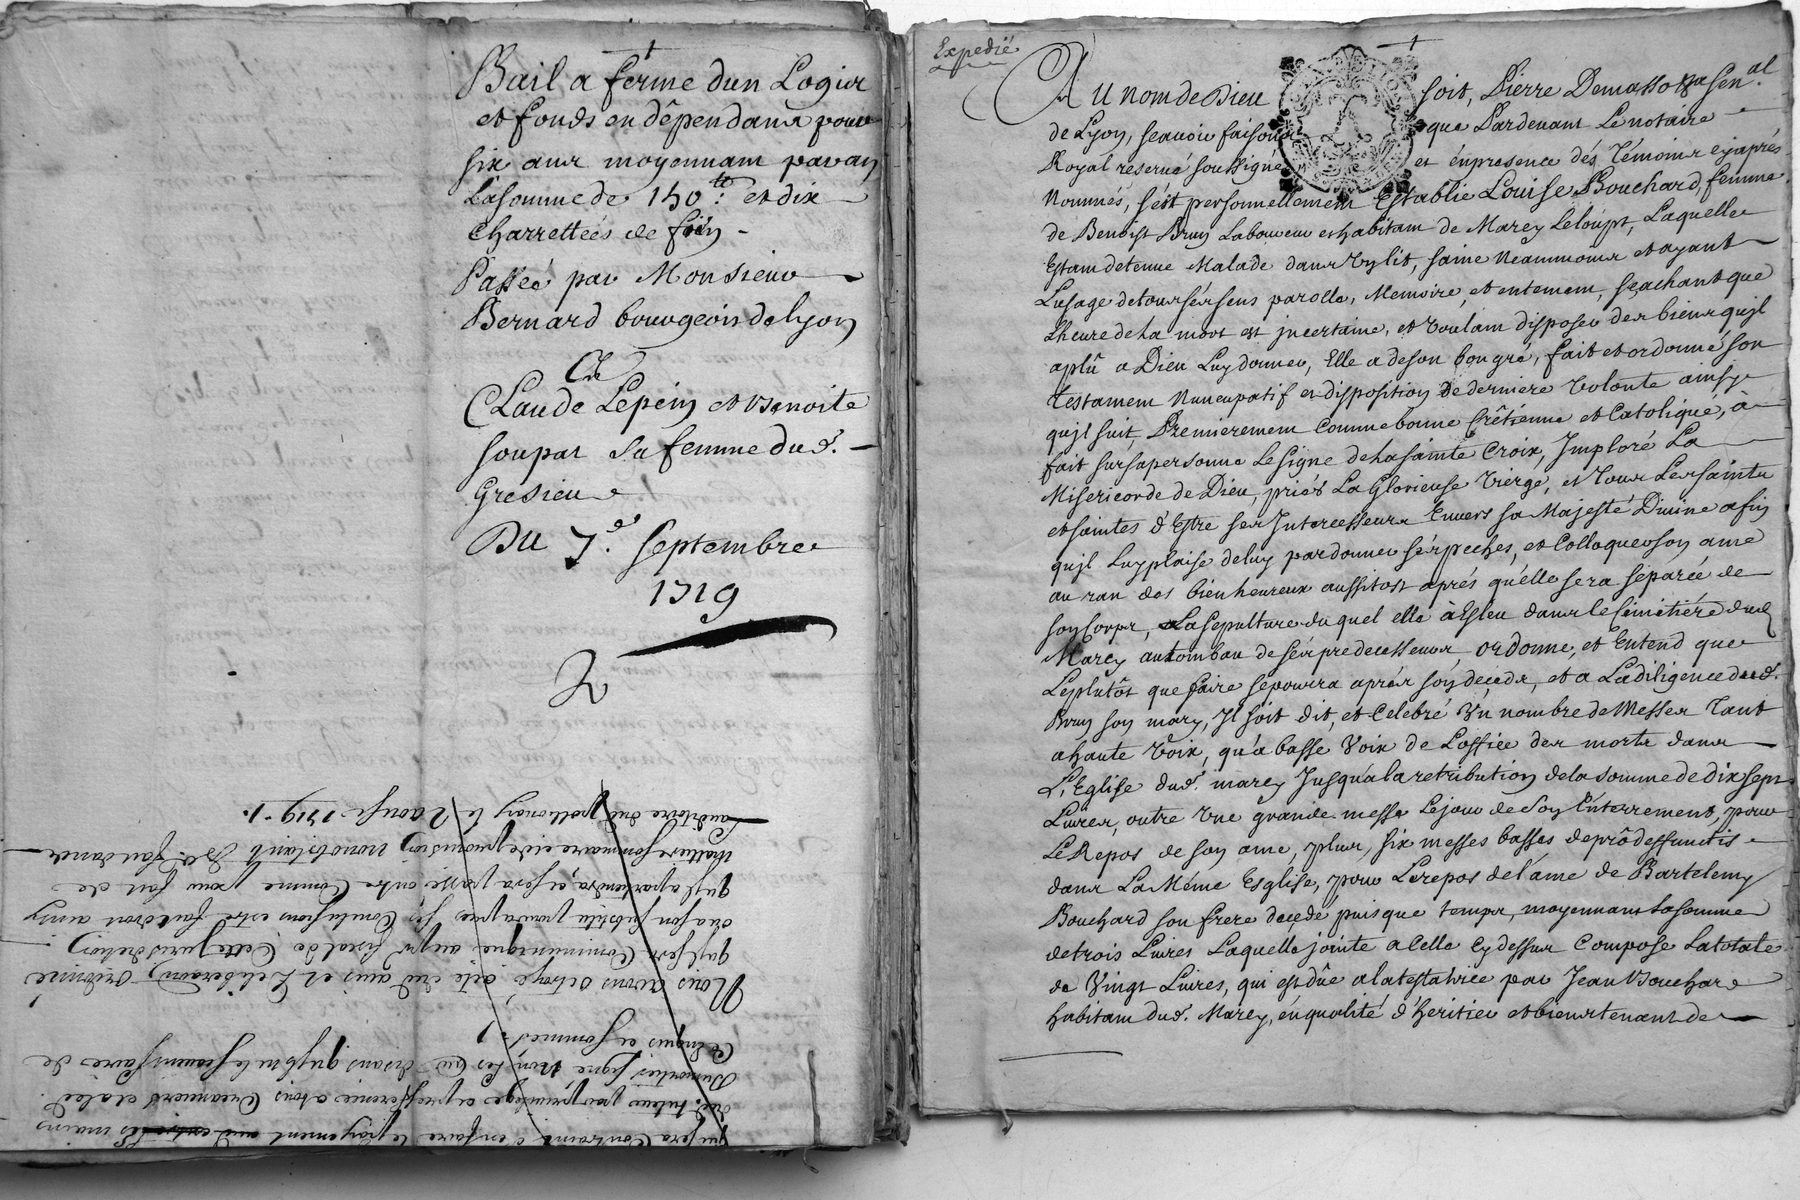 Bail a ferme dun Logis
et fonds en dêpendans pour
six ans moyennant par an
Lasomme de 150tt: et dix
Charrettéés de foin -
Passéé par Monsieur
Bernard bourgeois delyon
A
Claude Lepein et Benoite
soupat sa femme dud.
Gresieu
Du 7e. Septembre
1719
2
qui sera Contraint d'en faire le payement aud entre les mains
dud. tuteur par privilege et prefference a tous Creanciers et aled.
Dumortier signe
Nous avons octroyé acte dud avis et Deliberaon ordonné
quil sera Communiqué au pr fiscal de Cette Jurisdiction
ou a son substitu pour
quil apartiendra, et sera passé outre Comme pour fait de
Matiere sommaire et de provision nonobstant
Lauditoire dud pollionay le 2 aoust 1719.
Expedié
Au nom de Dieu soit, Pierre Demasso Senal.
de Lyon, scavoir faisons que Pardevant Le notaire
Royal reservé soussigné et énpresence dés Témoins cyaprés
Nommés, s'ést personnellement Establie Louise Bouchard, femme
de Benoist Brun Laboureur et habitant de Marcy Leloupt, Laquelle
Estant detenue Malade dans son lit, saine Neanmoins et ayant
Lusage detous sés sens parolle, Memoire, et entement, sçachant que
Lheure de la mort est jncertaine, et voulant disposer des biens qujl
aplû a Dieu Luy donner, Elle a deson bon gré, fait et ordonné son
testament Nuncupatif et disposition de derniere volonte ainsy
qujl suit, Premierement Comme bonne Crêtienne et Catoliqué, à
fait sur sa personne Le Signe de la sainte Croix, Jmploré La
Misericorde de Dieu, priés La Glorieuse Vierge, et Tous Les saints
et saintes d'Estre ses Jntercesseurs Envers sa Majesté Divine afin
qujl Luy plaise de luy pardonner sés peches, et Colloquer son ame
au ran des bienheureux aussitost aprés qu'elle sera separée de
son Corps, La sepulture du quel elle à Esleu dans le Cimetiére dud
Marcy au tombau de sés predecesseurs, ordonne, et Entend que
Leplutôt que faire se pourra aprés son decéds, et a La diligence dud.
Brun son mary, Jl soit dit, et Celebré Un nombre de Messes Tant
a haute Voix, qu'a basse Voix de Loffice des morts dans
L'Eglise dud. marcy Jusqu'a la retribution de la somme de dix sept
Livres, outre Une grande messe Le jour de Son Enterrement, pour
Le Repos de son ame, plus, six messes basses de prô deffunctis
dans La Méme Esglise, pour Le repos de l'ame de Bartelemy
Bouchard son frere decedé puis que temps, moyennant La somme
de trois Livres Laquelle jointe a Celle Cy dessus Compose La totale
de Vingt Livres, qui est dûe a la testatrice par Jean Bouchard
habitant dud. Marcy, én qualité d'héritier et biens tenant de